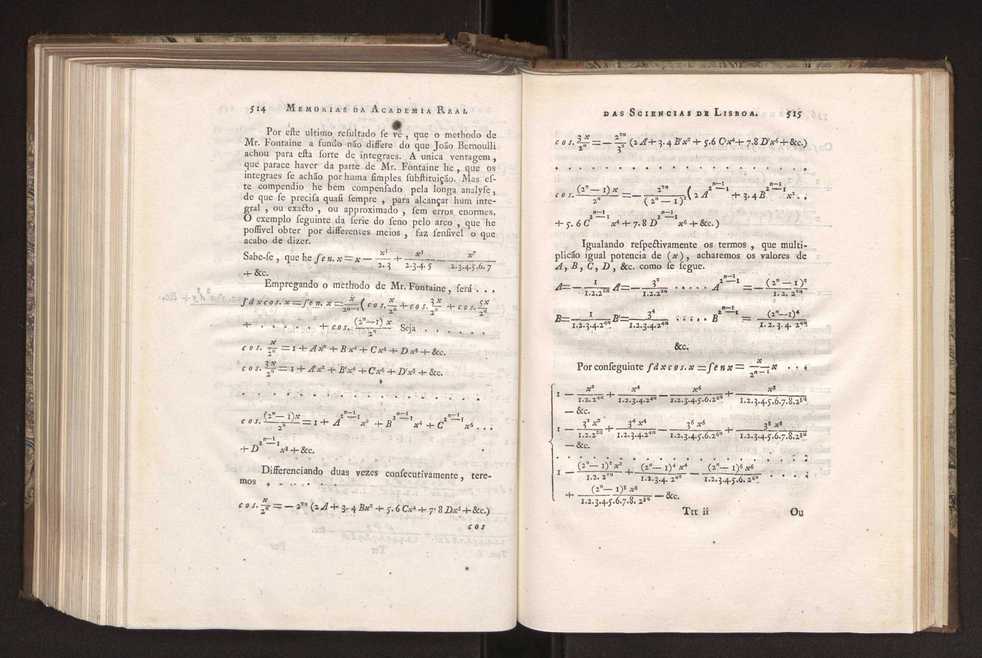 514 MEMORIAS DA ACADEMIA REAL
Por eſte ultimo reſultado ſe vê, que o methodo de
Mr. Fontaine a fundo não differe do que João Bernoulli
achou para eſta ſorte de integraes. A unica ventagem,
que parace haver da parte de Mr. Fontaine he, que os
integraes ſe achão por huma ſimples ſubſtituição. Mas eſ-
te compendio he bem compenſado pela longa analyſe,
de que ſe preciſa quaſi ſempre, para alcançar hum inte-
gral, ou exacto, ou approximado, ſem erros enormes.
O exemplo ſeguinte da ſerie do ſeno pelo arco, que he
poſſivel obter por differentes meios, faz ſenſivel o que
acabo de dizer.
Sabe-ſe, que he ſen. x = x − x³/2.3 + x⁵/2.3.4.5 − x⁷/2.3.4.5.6.7
+ &c.
Empregando o methodo de Mr. Fontaine, ſerá . . .
ſdxcos.x = ſen.x = x/2ⁿ⁻¹ (cos. x/2ⁿ + cos. 3x/2ⁿ + cos. 5x/2ⁿ
+ . . . . . + cos. (2ⁿ−1)x/2ⁿ Seja . . . . . .
cos. x/2ⁿ = 1 + Ax² + Bx⁴ + Cx⁶ + Dx⁸ + &c.
cos. 3x/2ⁿ = 1 + A'x² + B'x⁴ + C'x⁶ + D'x⁸ + &c.
. . . . . . . . . . . . . . . .
cos. (2ⁿ−1)x/2ⁿ = 1 + A^(2ⁿ⁻¹−1) x² + B^(2ⁿ⁻¹−1) x⁴ + C^(2ⁿ⁻¹−1) x⁶ . . .
+ D^(2ⁿ⁻¹−1) x⁸ + &c.
Differenciando duas vezes conſecutivamente, tere-
mos . . . . .
cos. x/2ⁿ = − 2²ⁿ (2A + 3.4Bx² + 5.6Cx⁴ + 7.8Dx⁶ + &c.)
cos
DAS SCIENCIAS DE LISBOA. 515
cos. 3x/2ⁿ = − 2²ⁿ/3² (2A' + 3.4B'x² + 5.6C'x⁴ + 7.8D'x⁶ + &c.)
. . . . . . . . . . . . . . . .
cos. (2ⁿ−1)x/2ⁿ = − 2²ⁿ/(2ⁿ−1)² (2A^(2ⁿ⁻¹−1) + 3.4B^(2ⁿ⁻¹−1) x² . .
+ 5.6C^(2ⁿ⁻¹−1) x⁴ + 7.8D^(2ⁿ⁻¹−1) x⁶ + &c.)
Igualando reſpectivamente os termos, que multi-
plicão igual potencia de (x), acharemos os valores de
A, B, C, D, &c. como ſe ſegue.
A = − 1/1.2.2²ⁿ A' = − 3²/1.2.2²ⁿ . . . . . A^(2ⁿ⁻¹−1) = − (2ⁿ−1)²/1.2.2²ⁿ
B = 1/1.2.3.4.2⁴ⁿ B' = 3⁴/1.2.3.4.2⁴ⁿ . . . . . B^(2ⁿ⁻¹−1) = (2ⁿ−1)⁴/1.2.3.4.2⁴ⁿ
&c.
Por conſeguinte ſdxcos.x = ſenx = x/2ⁿ⁻¹ . . .
1 − x²/1.2.2²ⁿ + x⁴/1.2.3.4.2⁴ⁿ − x⁶/1.2.3.4.5.6.2⁶ⁿ + x⁸/1.2.3.4.5.6.7.8.2⁸ⁿ
− &c.
1 − 3²x²/1.2.2²ⁿ + 3⁴x⁴/1.2.3.4.2⁴ⁿ − 3⁶x⁶/1.2.3.4.5.6.2⁶ⁿ + 3⁸x⁸/1.2.3.4.5.6.7.8.2⁸ⁿ
− &c.
. . . . . . . . . . . . . . . .
1 − (2ⁿ−1)²x²/1.2.2²ⁿ + (2ⁿ−1)⁴x⁴/1.2.3.4.2⁴ⁿ − (2ⁿ−1)⁶x⁶/1.2.3.4.5.6.2⁶ⁿ . . . .
+ (2ⁿ−1)⁸x⁸/1.2.3.4.5.6.7.8.2⁸ⁿ − &c.
Ttt ii Ou